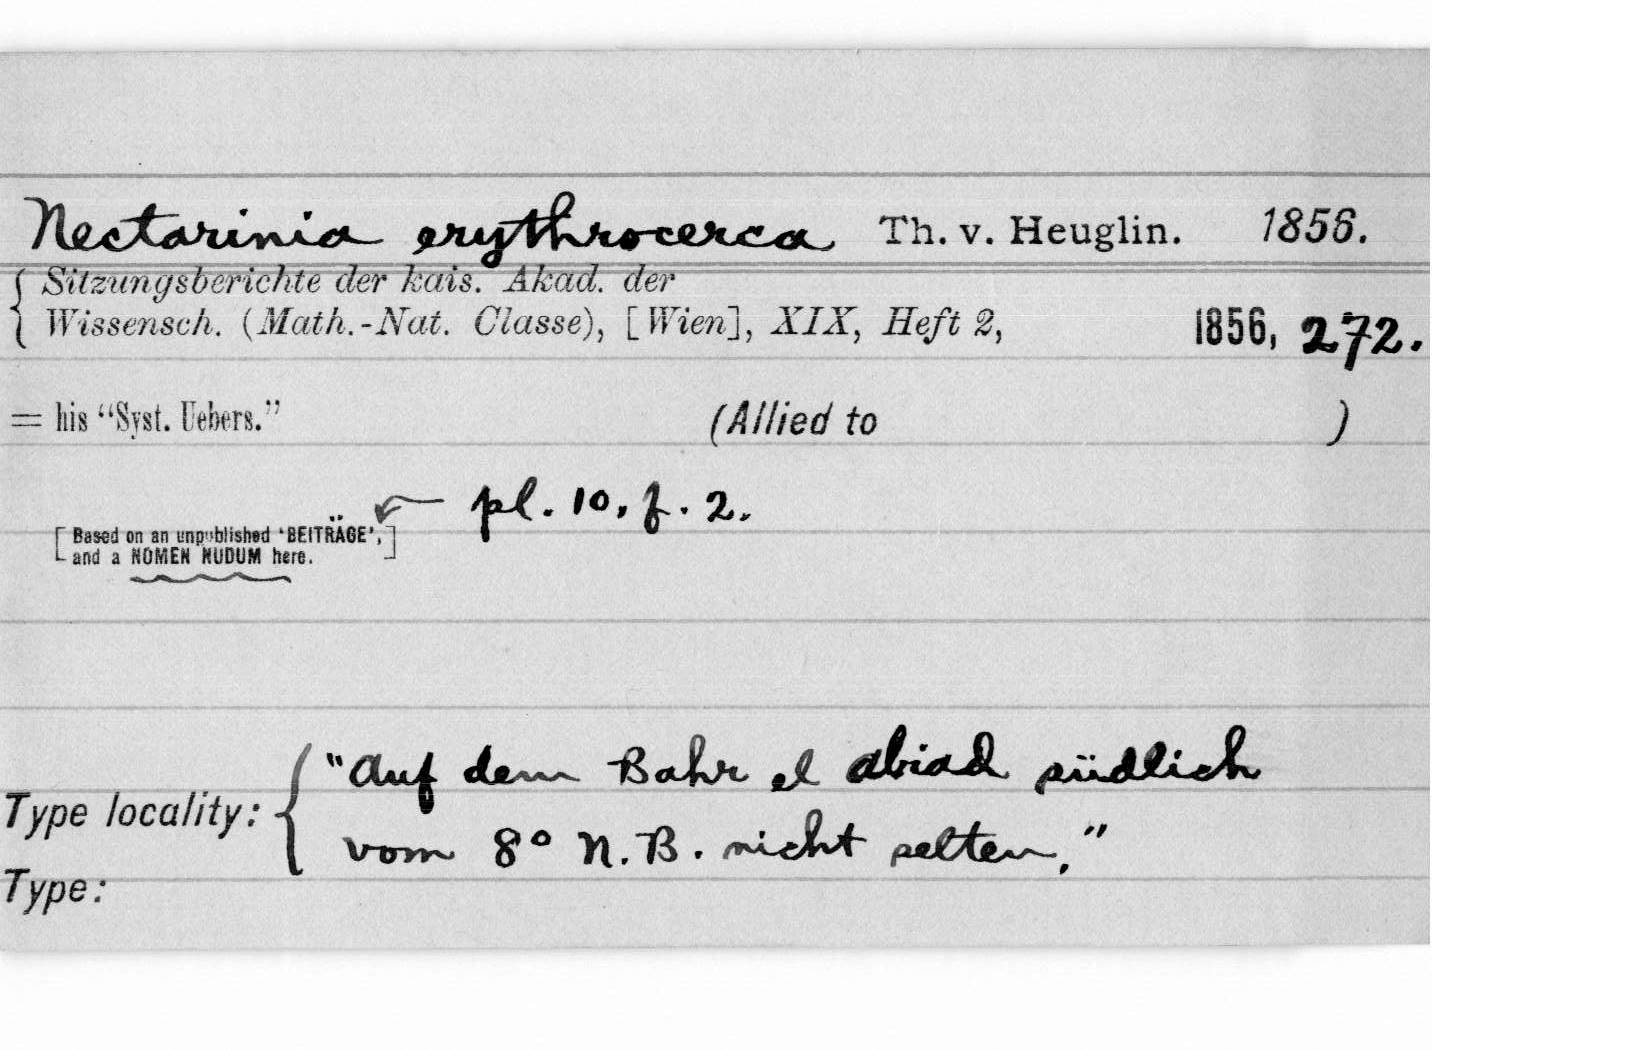 Nectarinia erythrocerca Th. v. Heuglin. 1856.
Sitzungsberichte der kais. Akad. der
Wissensch. (Math.-Nat. Classe), [Wien], XIX, Heft 2, 1856, 272.
= his “Syst. Uebers.” (Allied to )
pl. 10, f. 2.
[Based on an unpublished ‘BEITRÄGE’,]
and a NOMEN NUDUM here.
"Auf dem Bahr el abiad südlich
Type locality:
vom 8° N.B. nicht selten,"
Type: